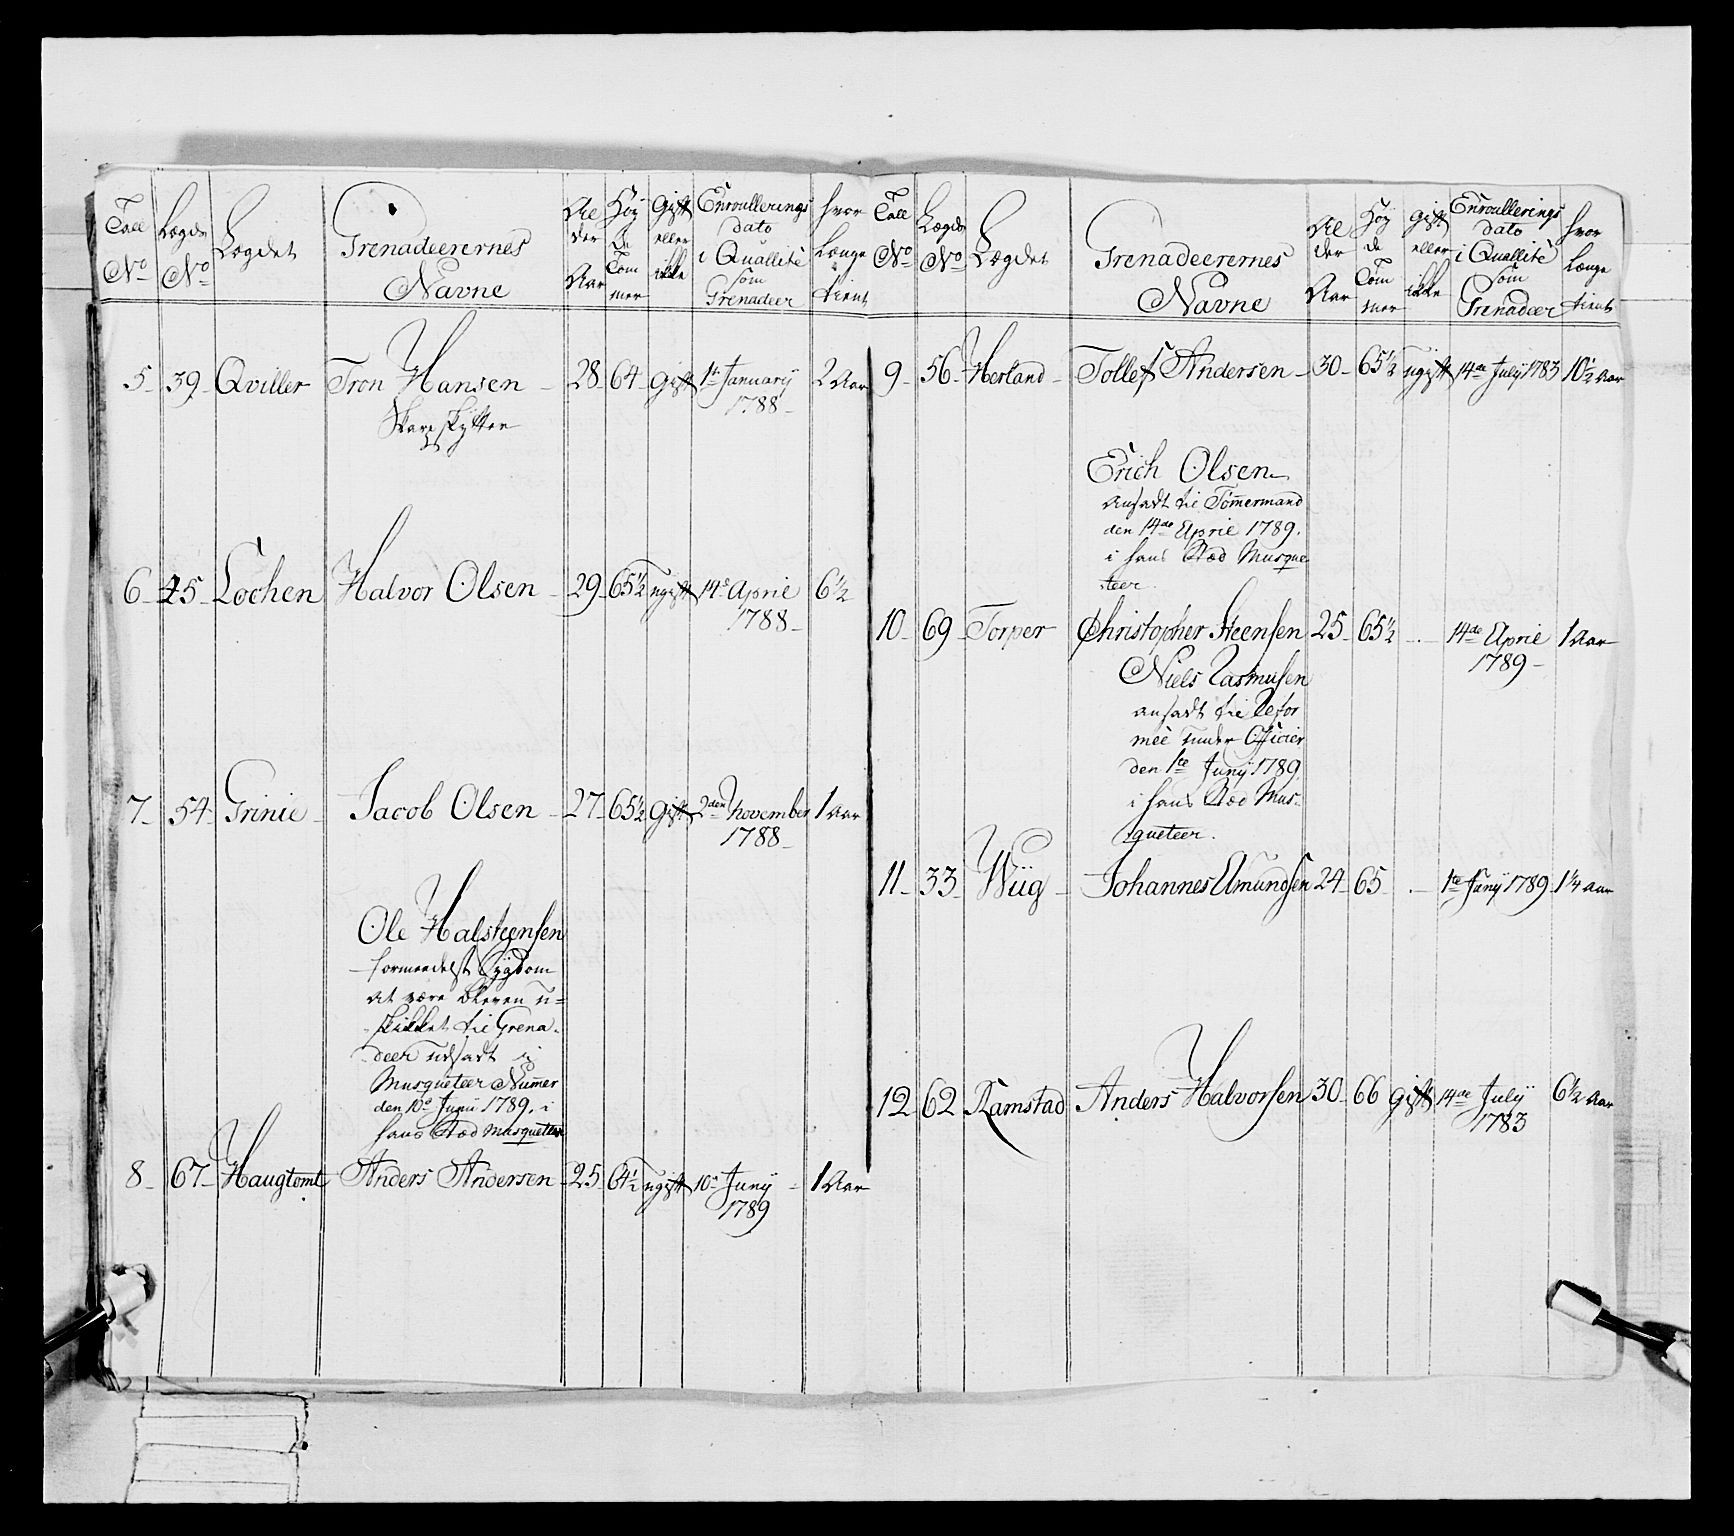 Tall No
Lægds No
Lægdet
Grenadeerernes Navne
Al der Aar
Høy de Tom mer
Gift eller ikke
Enroullerings dato i Quallité som Grenadeer
hvor Længe tient
5 39 Qviller Tron Hansen 28 64 Gift 1te January 2 Aar
Skarpskytter 1788
6 45 Lochen Halvor Olsen 29 65½ Ugift 14de April 6½
1788
7 54 Grinie Jacob Olsen 27 65½ Gift 2den November 1 Aar
1788
Ole Halsteensen
formedelst Sygdom
at være bleven u=
skikket til Grena-
deer udsadt i
Musqueteer Nummer
den 10de Junii 1789. i
hans Stæd Musqueteer
8 67 Haugtomt Anders Andersen 25 64½ Ugift 10de Juny 1 Aar
1789
Tall No
Lægds No
Lægdet
Grenadeerernes Navne
Al der Aar
Høy de Tom mer
Gift eller ikke
Enroullerings dato i Quallité som Grenadeer
hvor Længe tient
9 56 Herland Tollef Andersen 30 65½ Ugift 14de July 1783 10½ Aar
Erich Olsen
ansadt til Tømmermand
den 14de April 1789.
i hans Stæd Musque
teer
10 69 Torper Christopher Steensen 25 65½ . 14de April 1 Aar
1789
Niels Rasmusen
ansadt til Refor
meé Under Officier
den 1te Juny 1789
i hans Stæd Mus-
queteer.
11 33 Wiig Johannes Amundsen 24 65 . 1te Juny 1789 1¼ Aar
12 62 Ramstad Anders Halvorsen 30 66 Gift 14de July 6½ Aar
1783